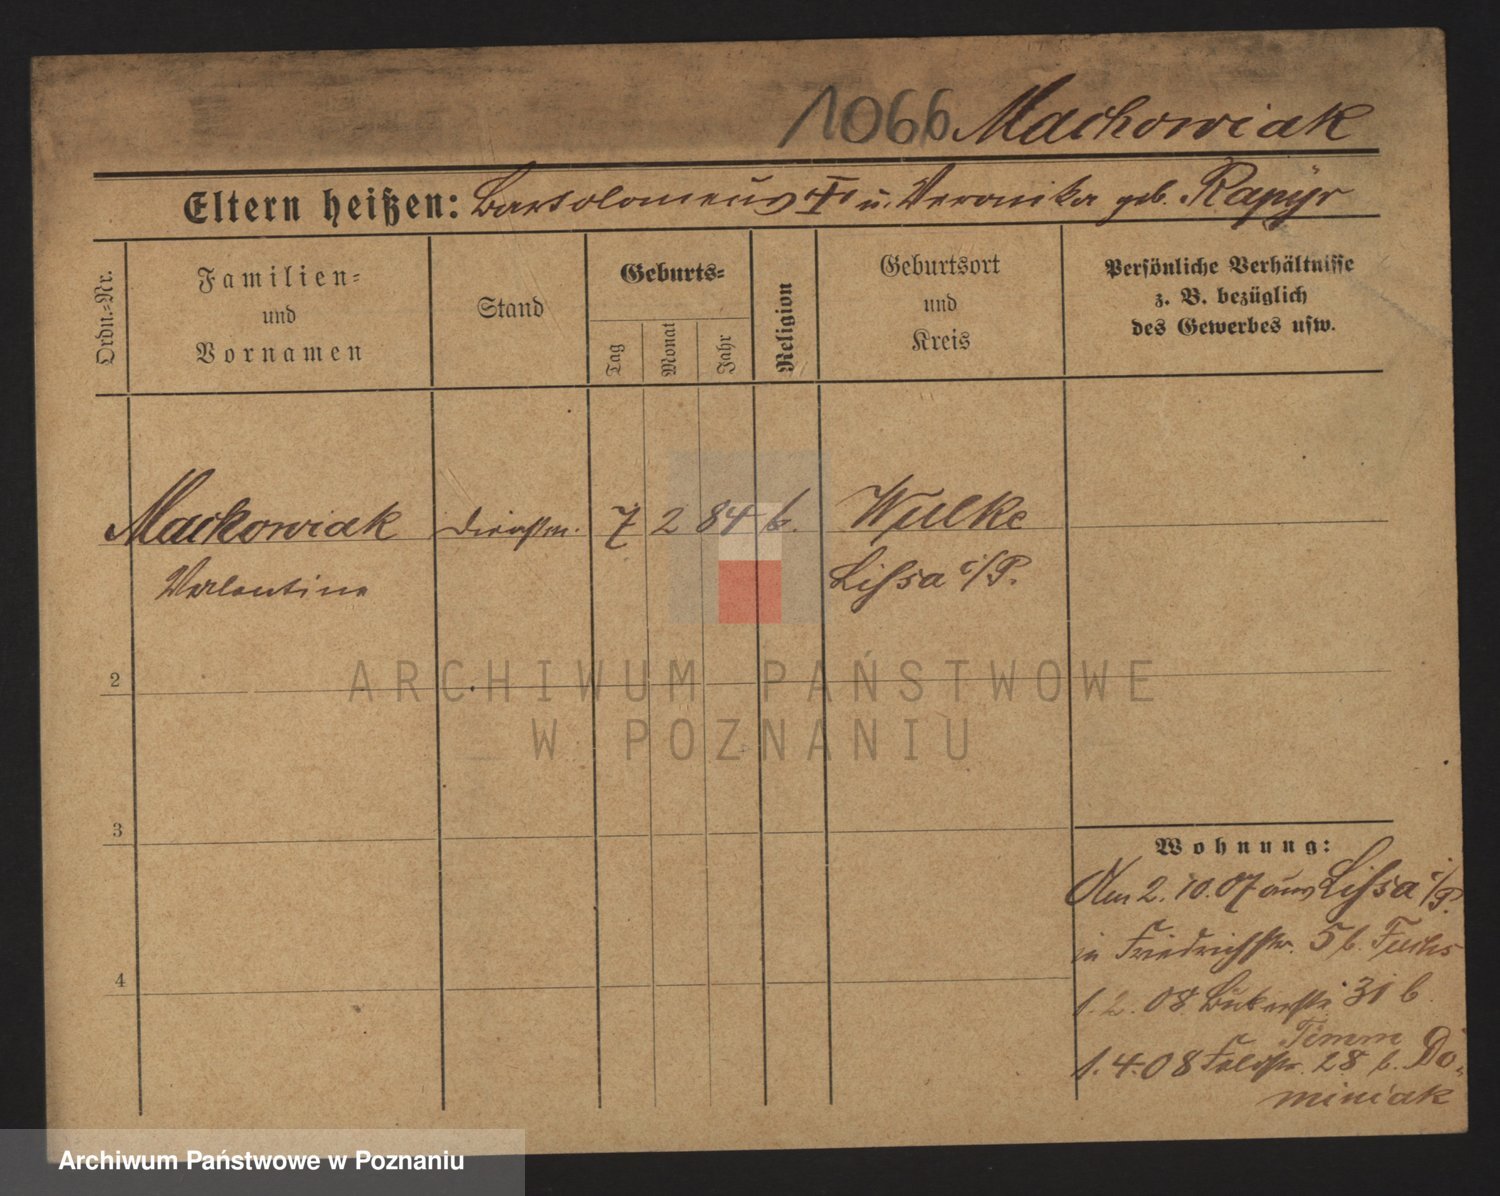 1066 Mackowiak
Eltern heißen: Bartolomeus † u. Veronika geb. Rapÿr
Ordn.-Nr.
Familien-
und
Vornamen
Stand
Geburts-
Tag
Monat
Jahr
Religion
Geburtsort
und
Kreis
Persönliche Verhältnisse
z. B. bezüglich
des Gewerbes usw.
Mackowiak Dienstm. 7 2 84 k. Wulke
Valentine Lissa i/P.
2
3
4
Wohnung:
Am 2. 10. 07 aus Lissa i/P.
in Friedrichstr. 5 b. Fuchs
1. 2. 08 31 b.
Timm
1. 4. 08 Feldstr. 28 b. Do-
miniak
ARCHIWUM PAŃSTWOWE
W POZNANIU
Archiwum Państwowe w Poznaniu